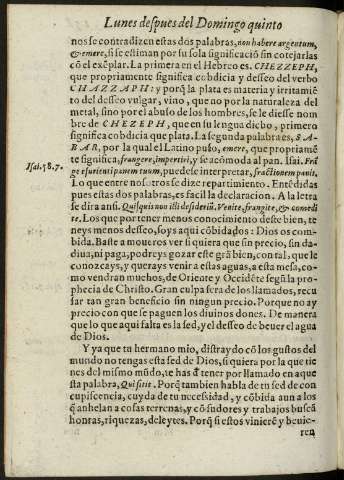 Lunes despues del Domingo quinto
nos se contradizen estas dos palabras, non habere argentum,
& emere, si se estiman por su sola significaciõ sin cotejarlas
cõ el exẽplar. La primera en el Hebreo es. CHEZZEPH,
que propriamente significa cobdicia y desseo del verbo
CHAZZAPH: y porq̃ la plata es materia y irritamiẽ
to del desseo vulgar, vino, que no por la naturaleza del
metal, sino por el abuso de los hombres, se le diesse nom
bre de CHEZEPH, que en su lengua dicho, primero
significa cobdicia que plata. La segunda palabra es, SA-
BAR, por la qual el Latino puso, emere, que propriamẽ
te significa, frangere, impertiri, y se acomoda al pan. Isai. Frã
Isai. 58. 7.
ge esurienti panem tuum, puedese interpretar, fractionem panis.
Lo que entre nosotros se dize repartimiento. Entẽdidas
pues estas dos palabras, es facil la declaracion. A la letra
se dira ansi. Quisquis non illi desiderii. Venite, frangite, & comedi
te. Los que por tener menos conocimiento deste bien, te
neys menos desseo, soys aqui cõbidados: Dios os com-
bida. Baste a moueros ver si quiera que sin precio, sin da-
diua, ni paga, podreys gozar este grã bien, con tal, que le
conozcays, y querays venir a estas aguas, a esta mesa, co-
mo vendran muchos, de Oriente y Occidẽte segũ la pro-
phecia de Christo. Gran culpa sera de los llamados, recu
sar tan gran beneficio sin ningun precio. Porque no ay
precio con que se paguen los diuinos dones. De manera
que lo que aqui falta es la sed, y el desseo de beuer el agua
de Dios.
Y ya que tu hermano mio, distraydo cõ los gustos del
mundo no tengas esta sed de Dios, si quiera por la que tie
nes del mismo mũdo, te has đ tener por llamado en aque
sta palabra, Qui sitit. Porq̃ tambien habla de tu sed de con
cupiscencia, cuyda de tu necessidad, y cõbida aun a los
q̃ anhelan a cosas terrenas, y cõ sudores y trabajos buscã
honras, riquezas, deleytes. Porq̃ si estos vinierẽ y beuie-
ren